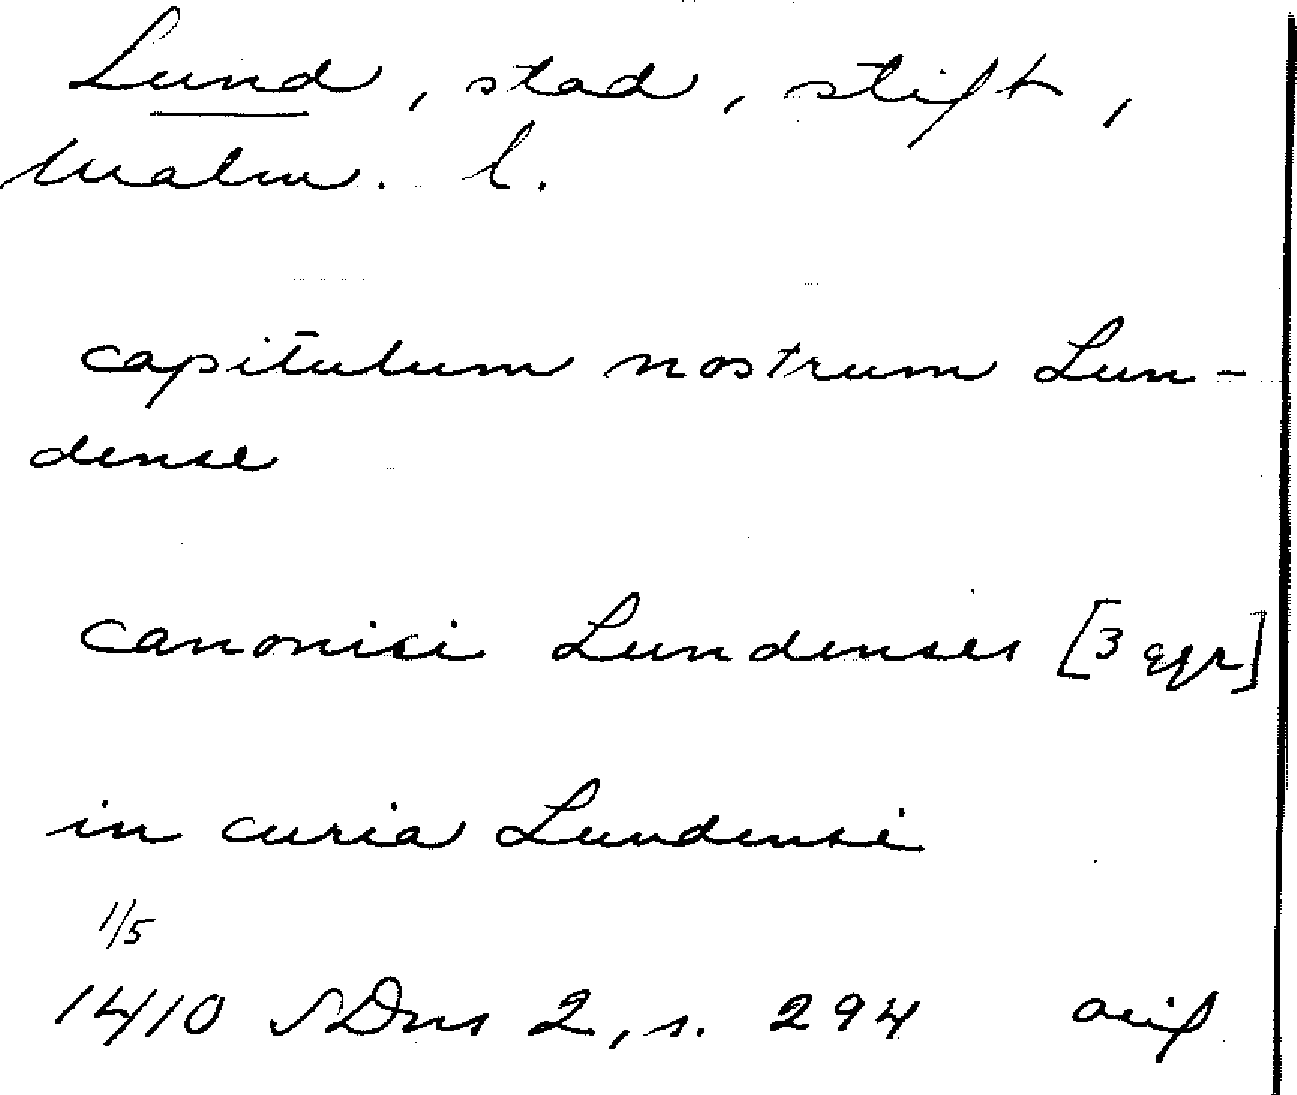 Lund, stad, stift,
Malm. l.
capitulum nostrum Lun-
dense
canonici Lundenses [3 ggr]
in curia Lundensi
1/5
1410 SDns 2, s. 294 avs